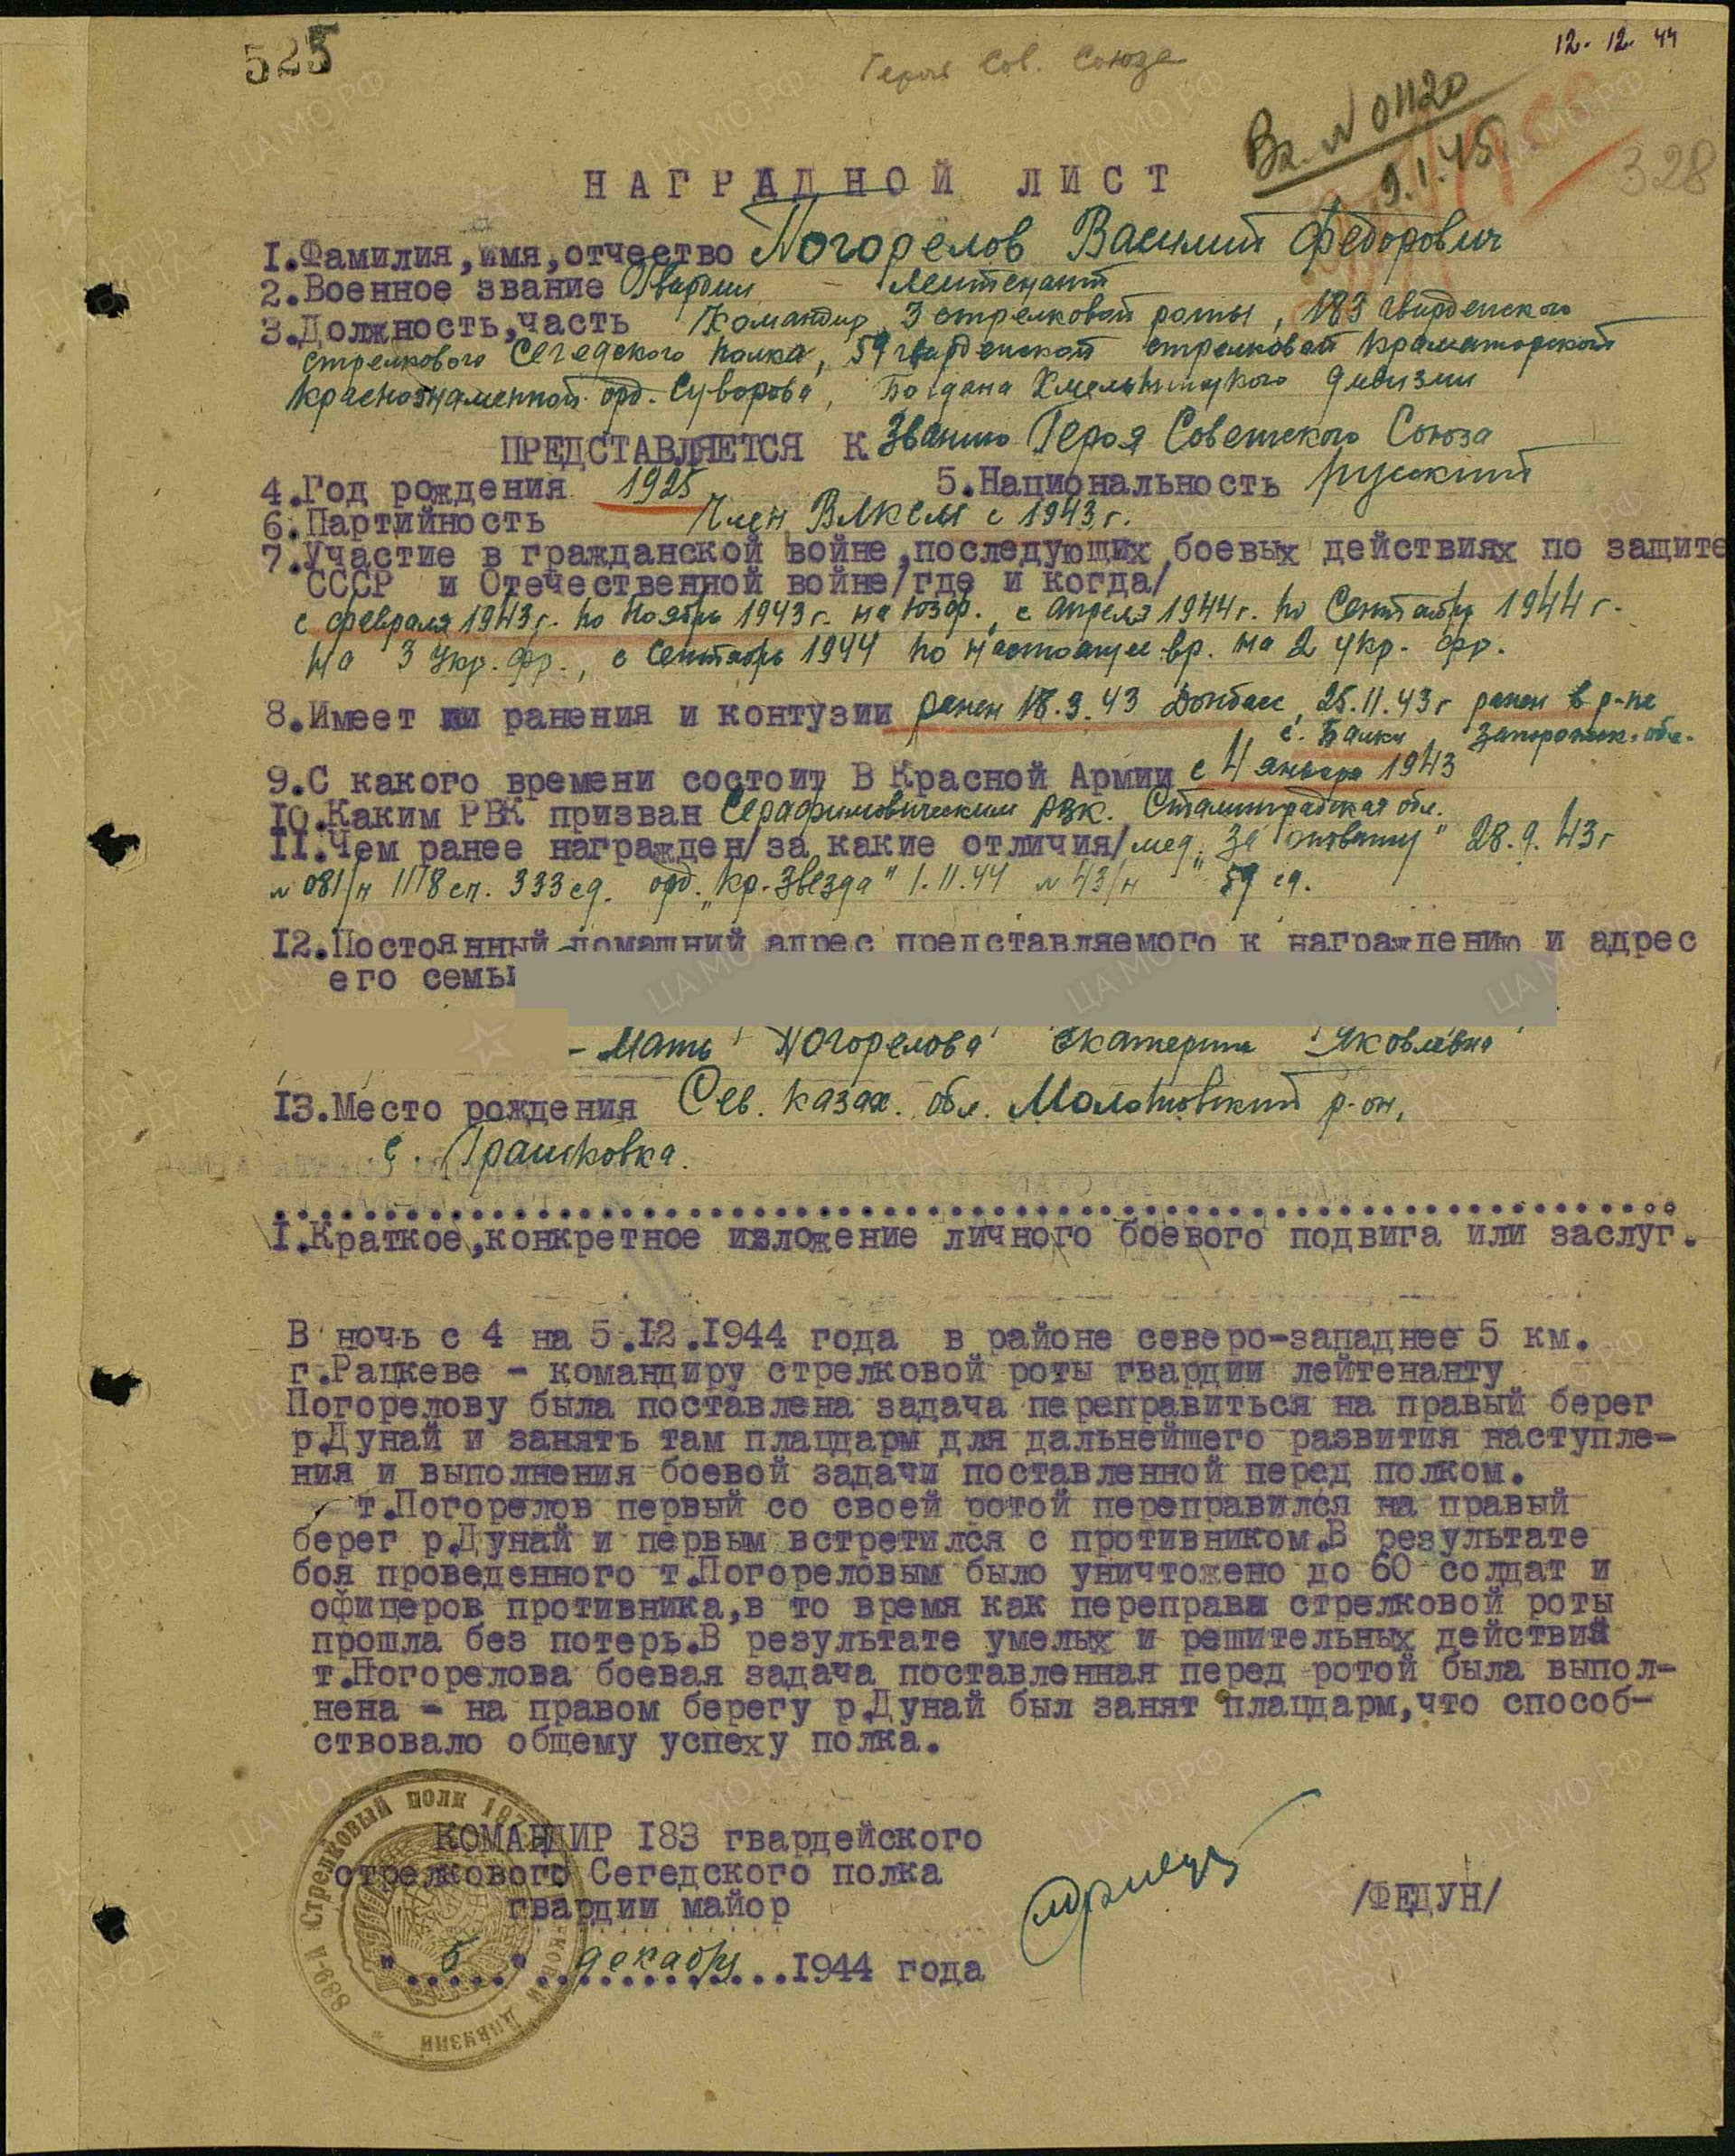 525
12.12.44
Героя Сов. Союза
Вх. N 01120
9.1.45
328
НАГРАДНОЙ ЛИСТ
1.Фамилия,имя,отчество Погорелов Василий Федорович
2.Военное звание Гвардии - лейтенант
3.Должность,часть Командир 3 стрелковой роты, 183 гвардейского
стрелкового Сегедского полка, 59 гвардейской стрелковой Краматорской
Краснознаменной орд. Суворова, Богдана Хмельницкого дивизии
ПРЕДСТАВЛЯЕТСЯ К Званию Героя Советского Союза
4.Год рождения 1925 5.Национальность русский
6.Партийность Член ВЛКСМ с 1943 г.
7.Участие в гражданской войне,последующих боевых действиях по защите
СССР и Отечественной войне/где и когда/
с февраля 1943 г. по Ноябрь 1943 г. на Юзф., с апреля 1944 г. по Сентябрь 1944 г.
на 3 Укр. фр., с Сентябрь 1944 по настоящее вр. на 2 укр. фр.
8.Имеет ли ранения и контузии ранен 18.3.43 Донбасс, 25.11.43 г ранен в р-не
с. Балки Запорожск. обл.
9.С какого времени состоит в Красной Армии с 4 января 1943
10.Каким РВК призван Серафимовическим рвк. Сталинградская обл.
11.Чем ранее награжден/за какие отличия/мед. "За отвагу" 28.9.43 г
N 081/н 1118 сп. 333 сд. орд. "Кр. Звезда" 1.11.44 N 43/н 59 сд.
12.Постоянный домашний адрес представляемого к награждению и адрес
его семьи
- Мать Погорелова Екатерина Яковлевна
13.Место рождения Сев. Казах. обл. Молотовский р-он,
с.
1.Краткое,конкретное изложение личного боевого подвига или заслуг.
В ночь с 4 на 5.12.1944 года в районе северо-западнее 5 км.
г.Рацкеве - командиру стрелковой роты гвардии лейтенанту
Погорелову была поставлена задача переправиться на правый берег
р.Дунай и занять там плацдарм для дальнейшего развития наступле-
ния и выполнения боевой задачи поставленной перед полком.
т.Погорелов первый со своей ротой переправился на правый
берег р.Дунай и первым встретился с противником.В результате
боя проведенного т.Погореловым было уничтожено до 60 солдат и
офицеров противника,в то время как переправа стрелковой роты
прошла без потерь.В результате умелых и решительных действий
т.Погорелова боевая задача поставленная перед ротой была выпол-
нена - на правом берегу р.Дунай был занят плацдарм,что способ-
ствовало общему успеху полка.
КОМАНДИР 183 гвардейского
стрелкового Сегедского полка
гвардии майор
/ФЕДУН/
"5" декабря 1944 года
889-й Стрелковый полк
дивизии
ЦА МО РФ
ПАМЯТЬ НАРОДА